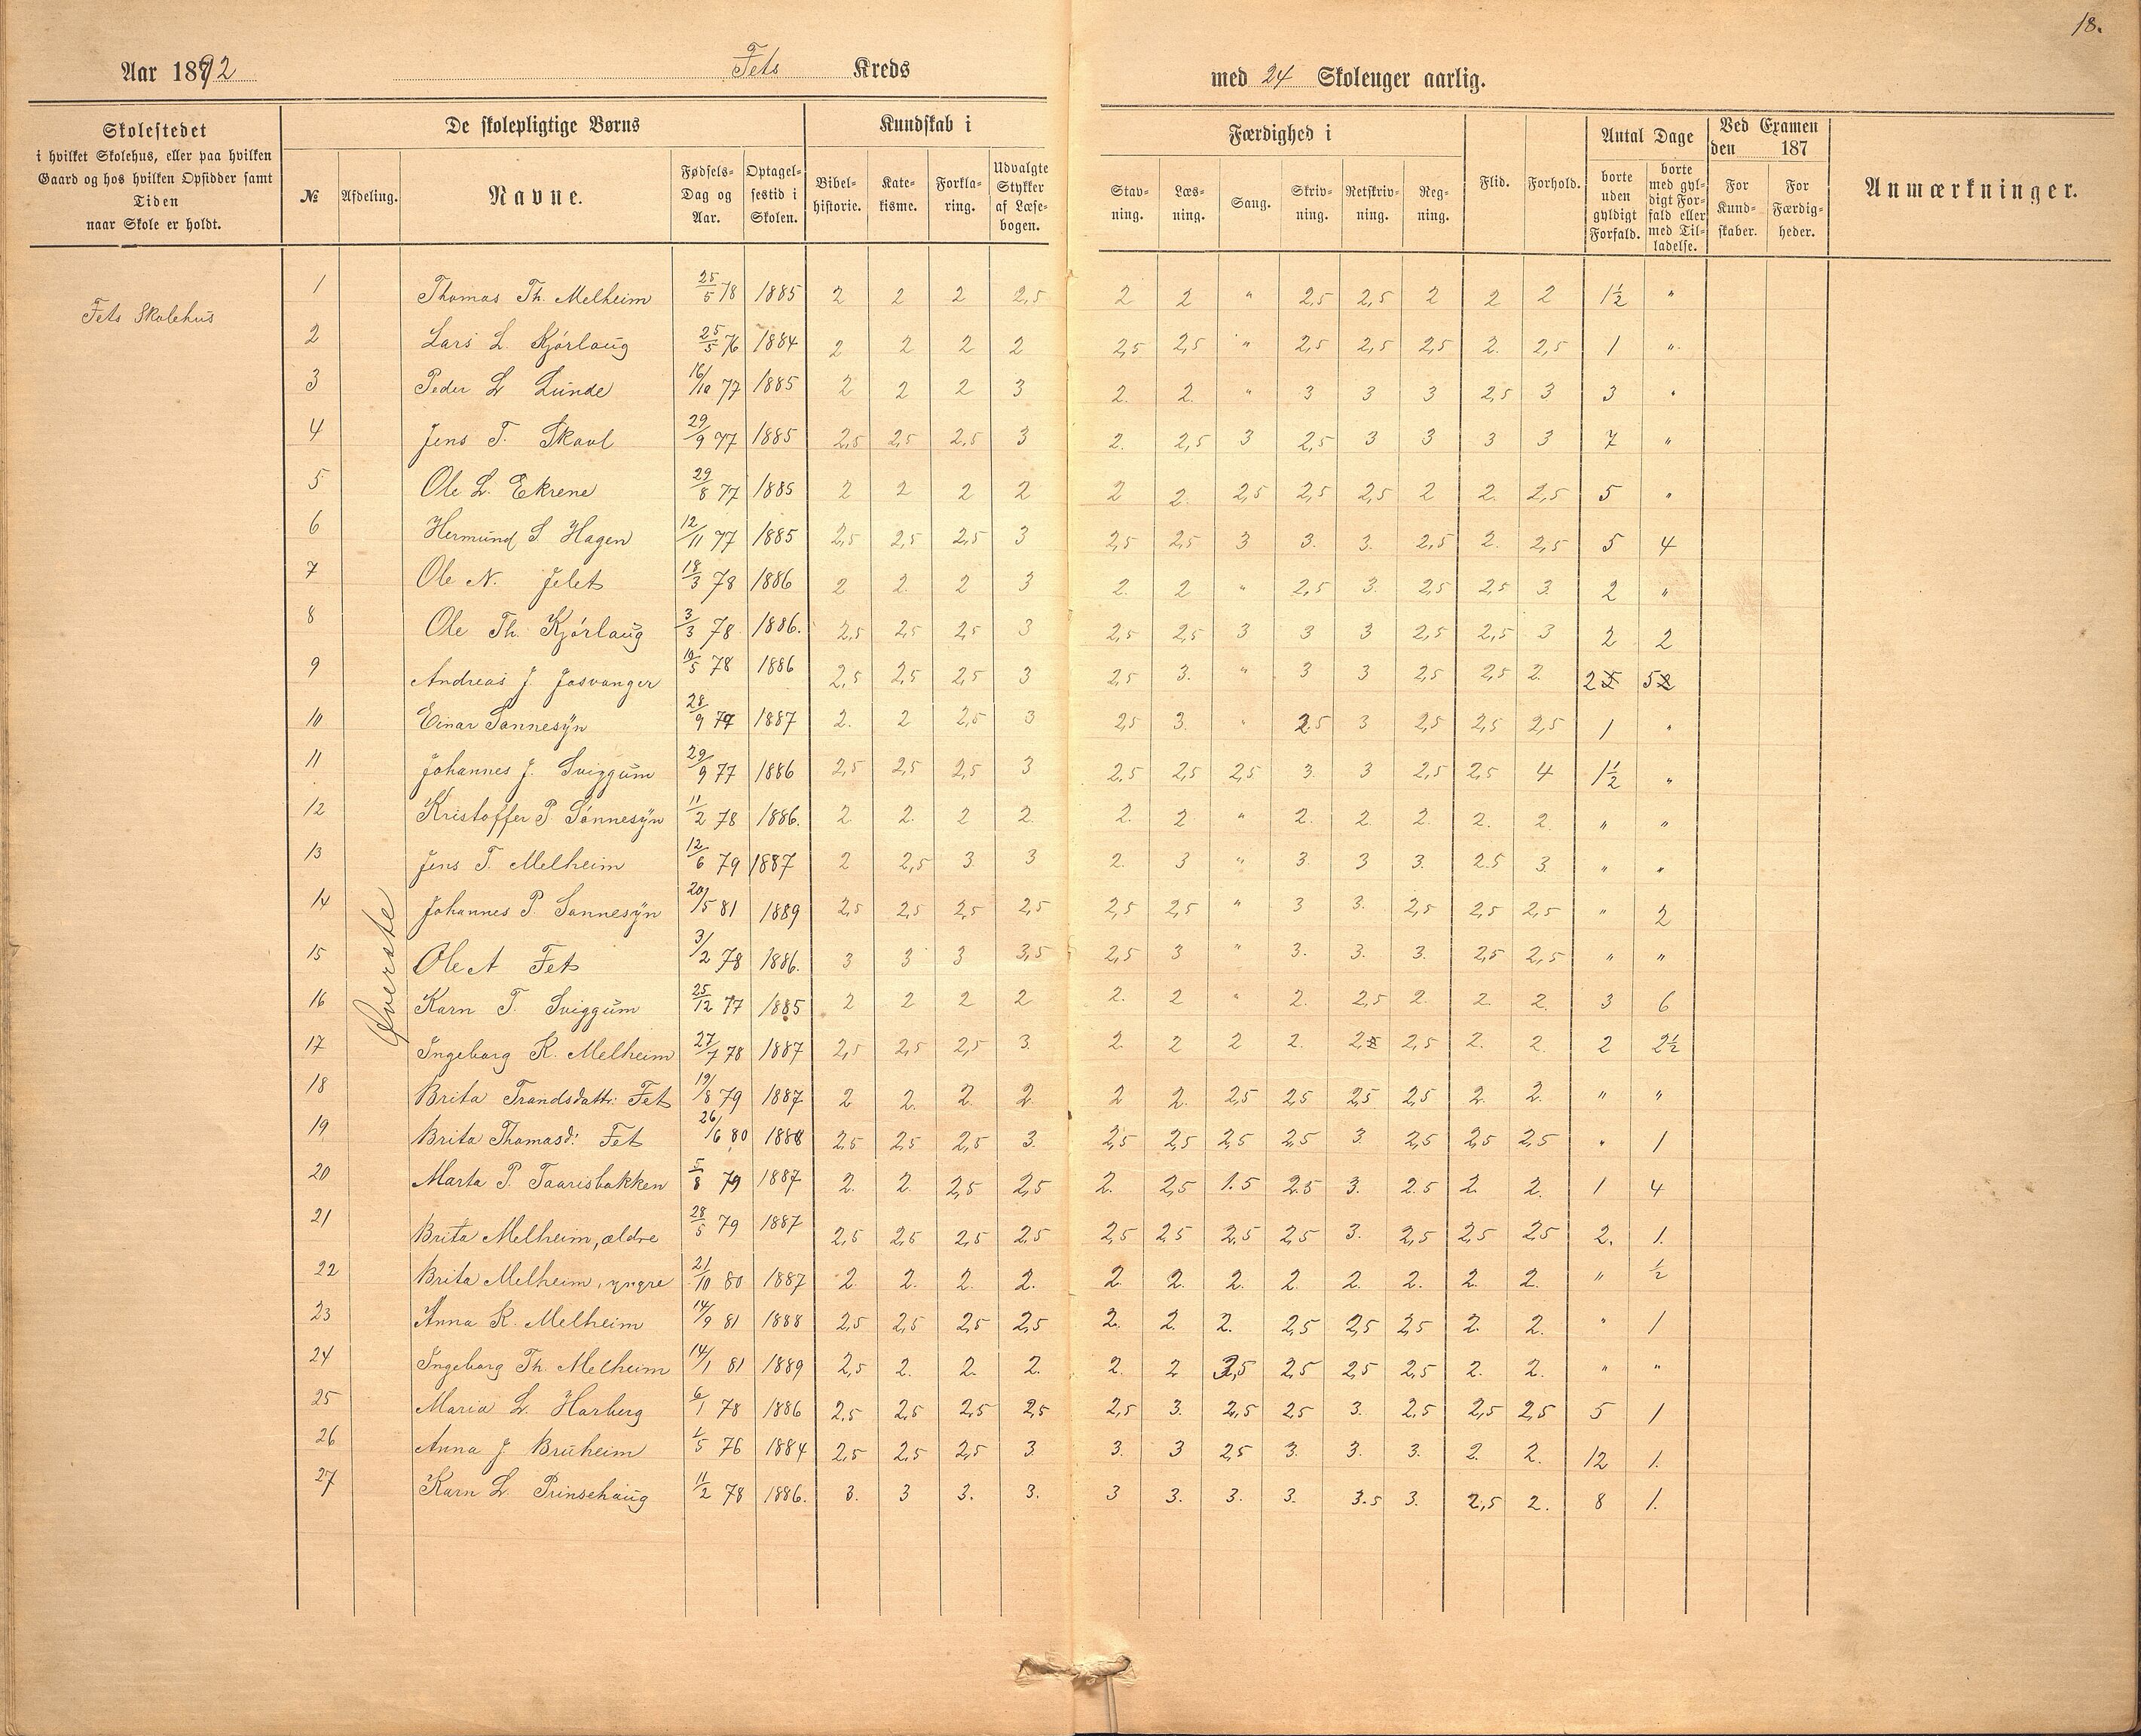 18.
Aar 1892 Fets Kreds med 24 Skoleuger aarlig.
Skolestedet
i hvilket Skolehus, eller paa hvilken
Gaard og hos hvilken Opsidder samt
Tiden
naar Skole er holdt.
De skolepligtige Børns
№ Afdeling. Navne. Fødsels-Dag og Aar. Optagelsestid i Skolen.
Kundskab i
Bibelhistorie. Katekisme. Forklaring. Udvalgte Stykker af Læsebogen.
Færdighed i
Stavning. Læsning. Sang. Skrivning. Retskrivning. Regning.
Flid. Forhold.
Antal Dage
borte uden gyldigt Forfald. borte med gyldigt Forfald eller med Tilladelse.
Ved Examen den 187
For Kundskaber. For Færdigheder.
Anmærkninger.
Fets Skolehus
Øverste
1 Thomas Th. Melheim 25/5 78 1885 2 2 2 2,5 2 2 " 2,5 2,5 2 2 2 1½ "
2 Lars L. Kjørlaug 25/5 76 1884 2 2 2 2 2,5 2,5 " 2,5 2,5 2,5 2. 2,5 1 "
3 Peder L. Lunde 16/10 77 1885 2 2 2 3 2. 2. " 3 3 3 2,5 3 3 "
4 Jens T. Skaul 29/9 77 1885 2,5 2,5 2,5 3 2. 2,5 3 2,5 3 3 3 3 7 "
5 Ole L. Ekrene 29/8 77 1885 2 2 2 2 2 2. 2,5 2,5 2,5 2 2. 2,5 5 "
6 Hermund S. Hagen 12/11 77 1885 2,5 2,5 2,5 3 2,5 2,5 3 3. 3. 2,5 2. 2,5 5 4
7 Ole N. Jelet 18/3 78 1886 2 2. 2 3 2. 2 " 2,5 3. 2,5 2,5 3. 2 "
8 Ole Th. Kjørlaug 3/3 78 1886. 2,5 2,5 2,5 3 2,5 2,5 3 3 3 2,5 2,5 3 2 2
9 Andreas J. Josvanger 10/5 78 1886 2,5 2,5 2,5 3 2,5 3. " 3 3 2,5 2,5 2. 2 5
10 Einar Sønnesÿn 28/9 79 1887 2. 2 2,5 3 2,5 3. " 2.5 3 2,5 2,5 2,5 1 "
11 Johannes J. Sviggum 29/9 77 1886 2,5 2,5 2,5 3 2,5 2,5 2,5 3. 3 2,5 2,5 4 1½ "
12 Kristoffer P Sønnesÿn 11/2 78 1886. 2 2. 2 2. 2. 2 " 2. 2. 2. 2. 2. " "
13 Jens T. Melheim 12/6 79 1887 2 2,5 3. 3 2. 3 " 3. 3 3. 2.5 3. " "
14 Johannes P. Sønnesÿn 20/5 81 1889 2,5 2,5 2,5 2,5 2,5 2,5 " 3 3. 2,5 2,5 2,5 " 2
15 Ole A Fet 3/2 78 1886. 3 3 3 3,5 2,5 3 " 3. 3. 3. 2,5 2,5 " "
16 Karn T. Sviggum 25/12 77 1885 2 2 2 2 2. 2 " 2. 2,5 2. 2. 2. 3 6
17 Ingeborg K. Melheim 27/7 78 1887 2,5 2,5 2,5 3. 2. 2 2 2. 2,5 2,5 2. 2. 2 2½
18 Brita Trondsdattr: Fet 19/8 79 1887 2 2. 2. 2. 2 2. 2,5 2,5 2,5 2,5 2. 2. " "
19 Brita Thomasd: Fet 26/6 80 1888 2,5 2,5 2,5 3. 2,5 2,5 2,5 2,5 3. 2,5 2,5 2,5 " 1
20 Marta P. Taarisbakken 5/8 79 1887 2. 2. 2,5 2,5 2. 2,5 1.5 2.5 3. 2.5 2. 2. 1 4
21 Brita Melheim, ældre 28/5 79 1887 2,5 2,5 2,5 2,5 2,5 2,5 2,5 2,5 3. 2,5 2,5 2,5 2. 1.
22 Brita Melheim, yngre 21/10 80 1887 2. 2. 2. 2. 2. 2. 2. 2. 2. 2. 2. 2. " ½
23 Anna K. Melheim 14/9 81 1888 2,5 2,5 2,5 2,5 2. 2. 2. 2,5 2,5 2,5 2. 2. " 1
24 Ingeborg Th. Melheim 14/1 81 1889 2,5 2. 2. 2. 2. 2 2,5 2,5 2,5 2,5 2. 2. " "
25 Maria L. Harberg 6/1 78 1886 2,5 2,5 2,5 2,5 2,5 3. 2,5 2,5 3. 2,5 2,5 2,5 5 1
26 Anna J. Bruheim 1/5 76 1884 2,5 2,5 2,5 3. 3. 3 2,5 3. 3. 3. 2. 2. 12 1.
27 Karn L. Prinsehaug 11/2 78 1886. 3. 3 3. 3. 3 3. 3. 3. 3.5 3. 2,5 2. 8 1.